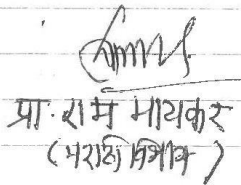 प्रा. राम मायकर
(मराठी विभाग)